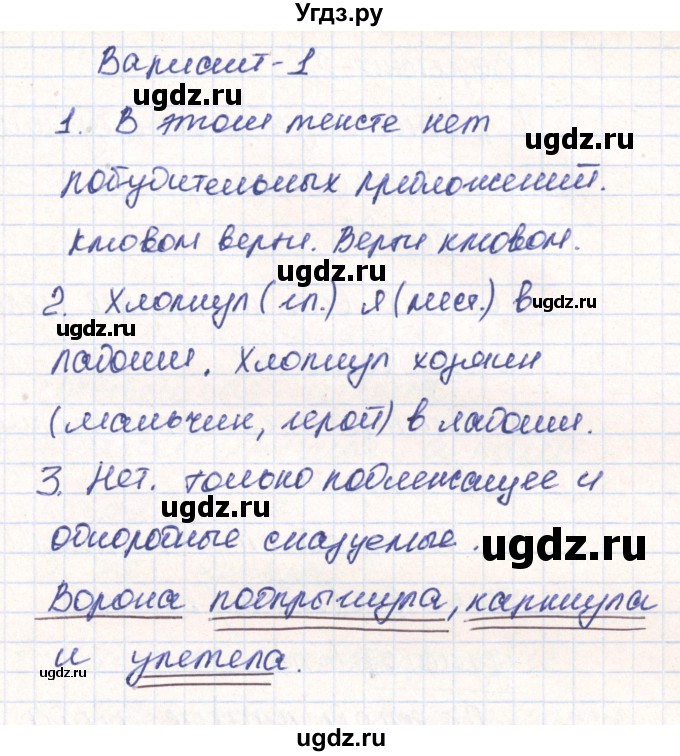 Угдз.ру
Вариант-1
ugdz.ru
ugdz.ru
1. В этом тексте нет
побудительных предложений.
Клювом верти. Верти клювом.
ugdz.ru
2. Хлопнул (гл.) я (мест.) в
ugdz.ru
ugdz.ru
ладоши. Хлопнул хозяин
ugdz.ru
(мальчик, герой) в ладоши.
3. Нет. только подлежащее и
ugdz.ru
однородные сказуемые.
ugdz.ru
Ворона подпрыгнула, каркнула
и улетела.
ugdz.ru
ugdz.ru
ugdz.ru